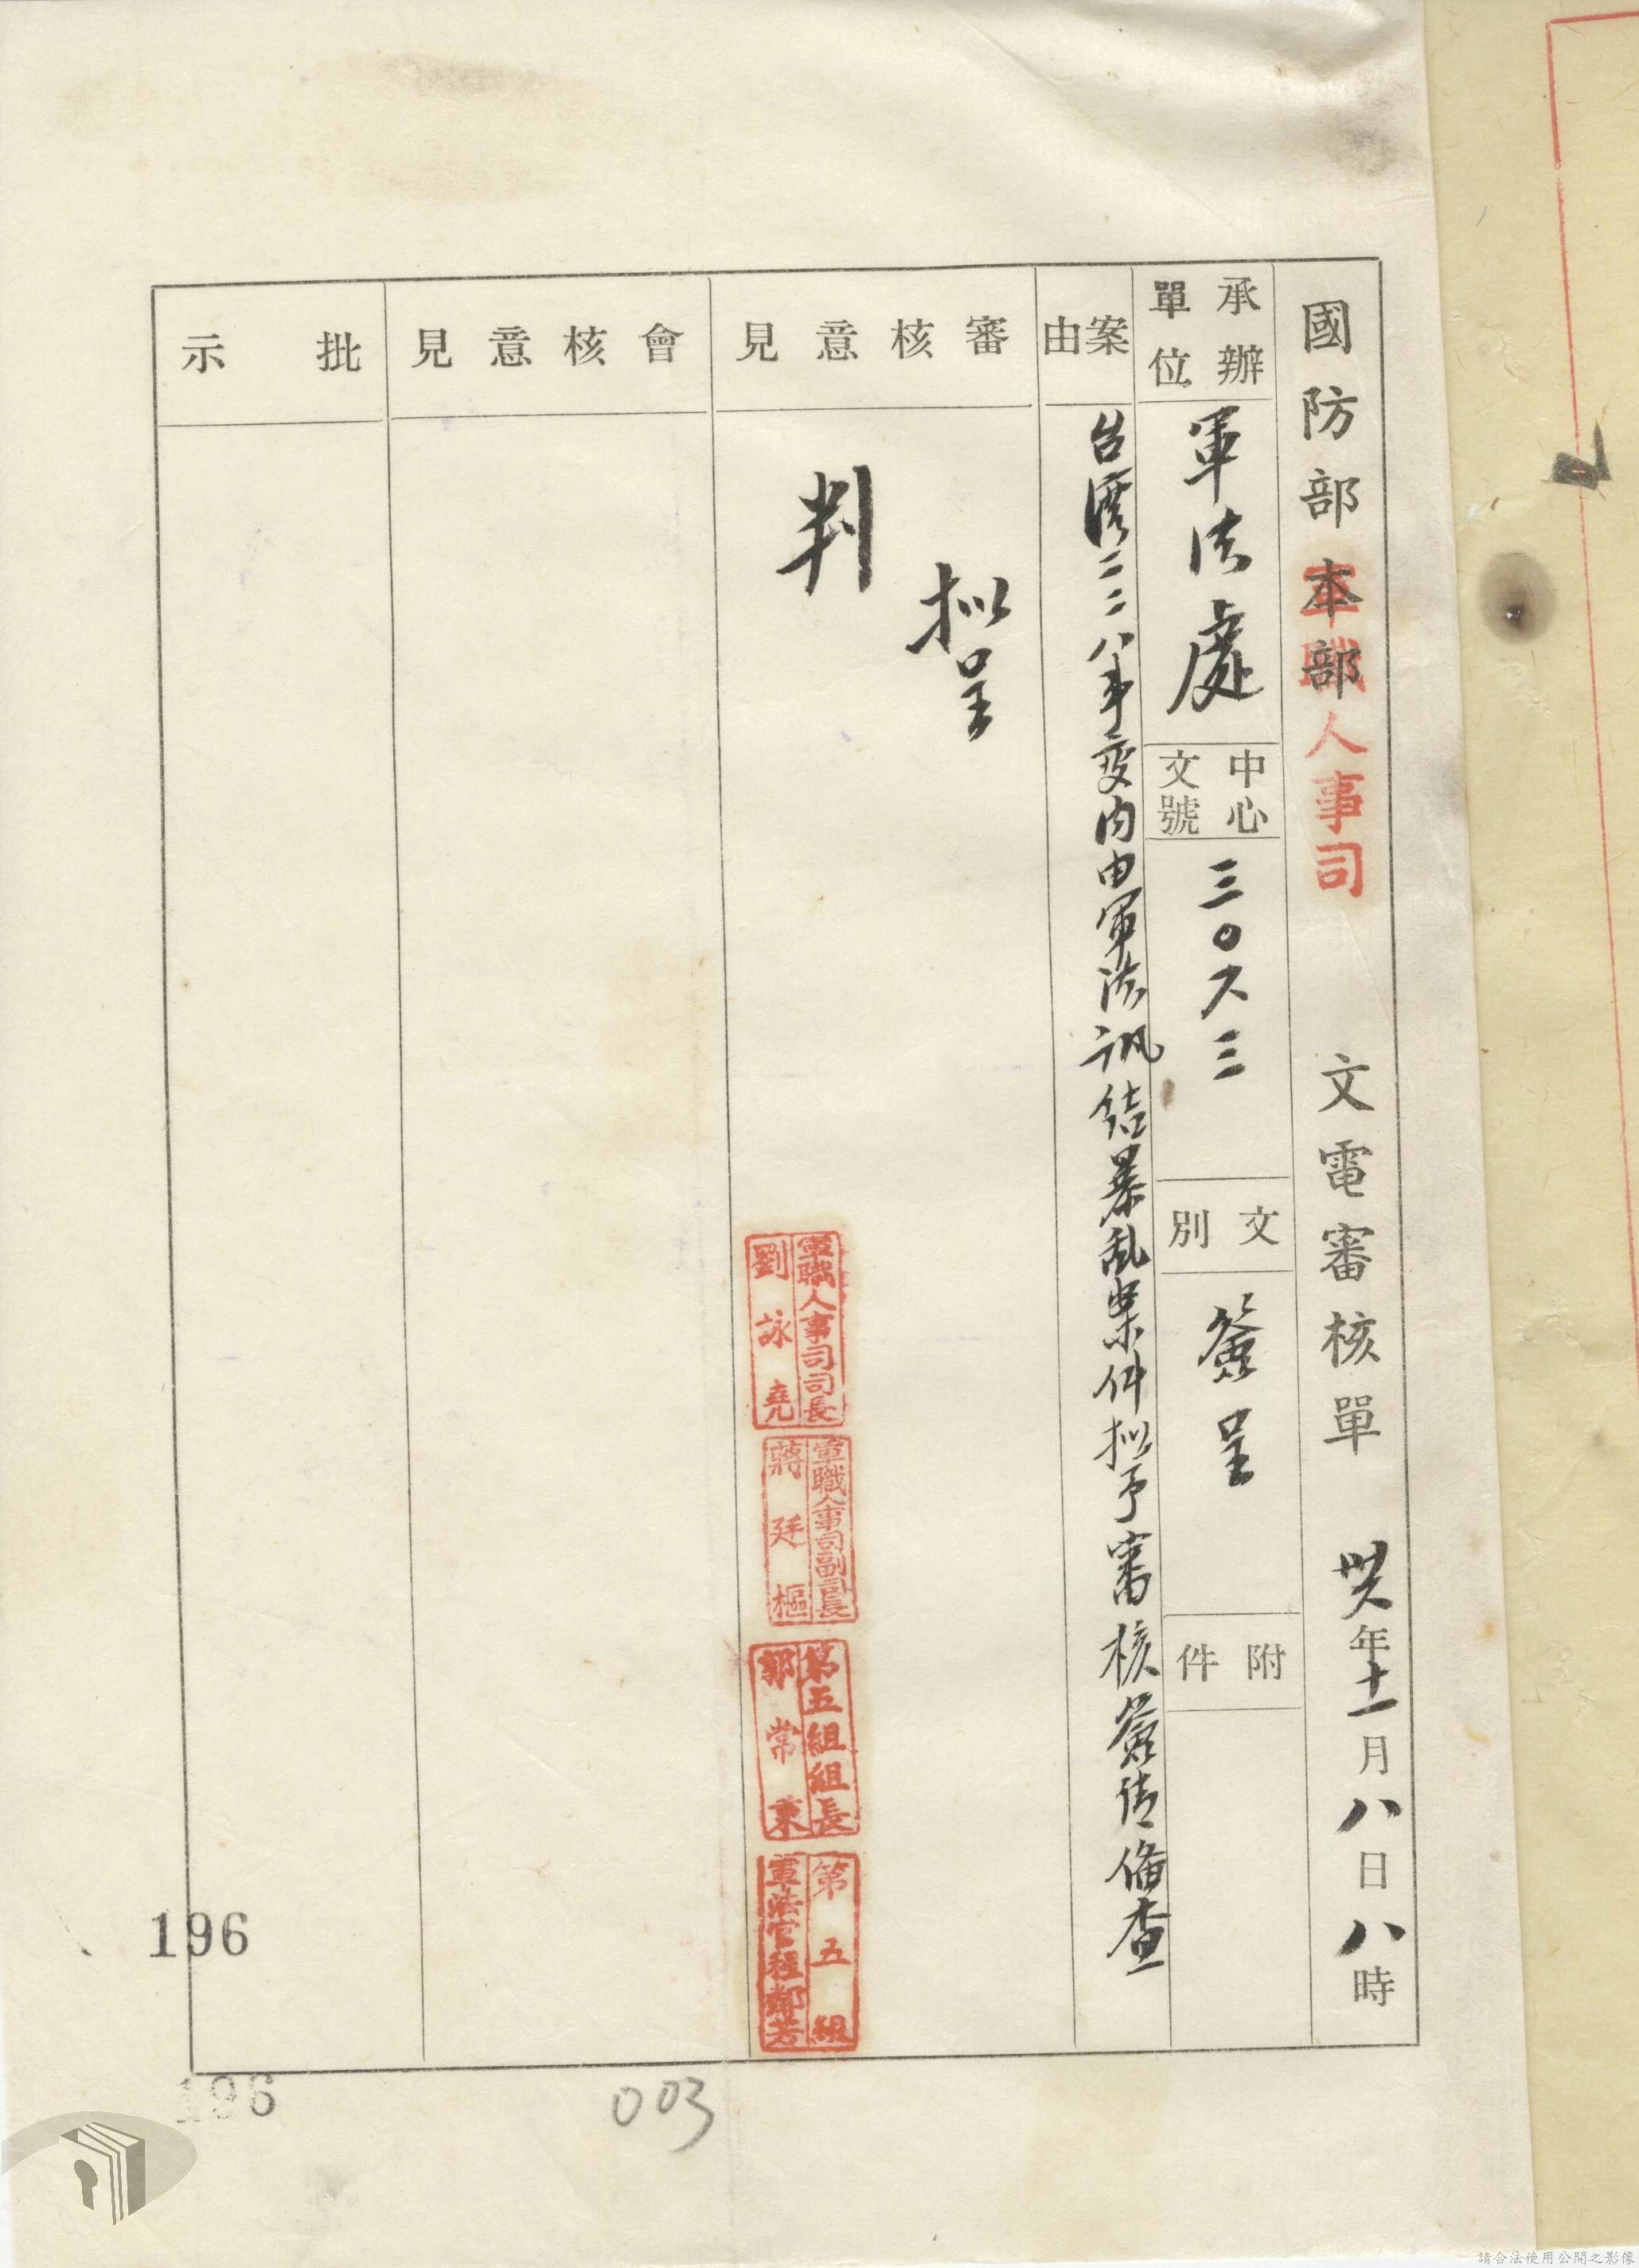 國防部本部軍職人事司 文電審核單 卅六年十一月八日八時
承辦單位
軍法處
中心文號
三〇六三
文別
簽呈
附件
案由
台灣二二八事變内由軍法訊結暴亂案件拟予審核簽請備查
審核意見
拟呈
判
軍職人事司司長
劉詠堯
軍職人事司副司長
蔣廷樞
第五組組長
郭常秉
第五組
軍法官程鄰芳
會核意見
批示
196
196
003
請合法使用公開之影像